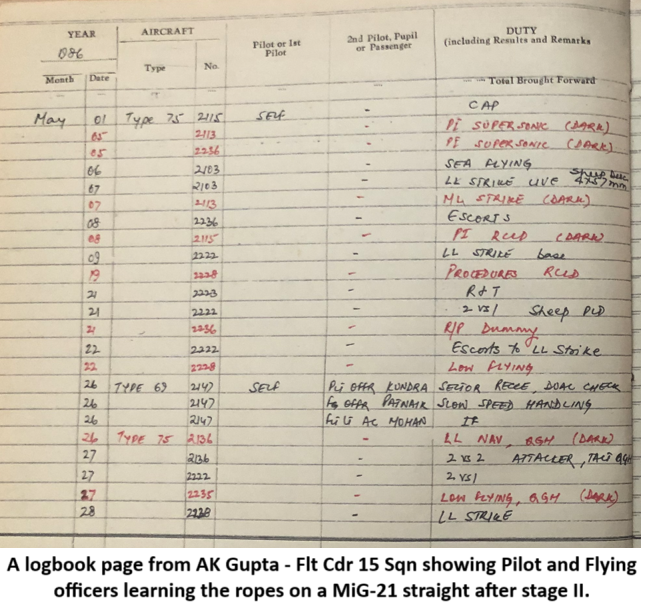 YEAR AIRCRAFT Pilot or 1st Pilot 2nd Pilot, Pupil or Passenger DUTY (including Results and Remarks
1986 Type No.
Month Date Total Brought Forward
CAP
May 01 Type 75 2115 SELF -
05 2113 - PI SUPERSONIC (DARK)
05 2236 - PI SUPERSONIC (DARK)
06 2103 - SEA FLYING
07 2103 - LL STRIKE LIVE 4x57mm
07 2113 - ML STRIKE (DARK)
08 2236 - ESCORTS
08 2115 - PI RCLD (DARK)
09 2222 - LL STRIKE base
19 2228 - PROCEDURES RCLD
21 2223 - R&T
21 2222 - 2 VS 1 Sheep PLD
21 2236 - R/P Dummy
22 2222 - Escorts to LL Strike
22 2228 - LOW FLYING
26 TYPE 69 2147 SELF Plt OFFR KUNDRA SECTOR RECCE, DUAL CHECK
26 2147 Fg OFFR PATNAIK SLOW SPEED HANDLING
26 2147 Flt Lt AC MOHAN IF
26 TYPE 75 2136 - LL NAV, QGH (DARK)
27 2136 - 2 VS 2 ATTACKER,
27 2222 - 2 VS 1
27 2235 - LOW FLYING, QGH (DARK)
28 - LL STRIKE
A logbook page from AK Gupta - Flt Cdr 15 Sqn showing Pilot and Flying
officers learning the ropes on a MiG-21 straight after stage II.